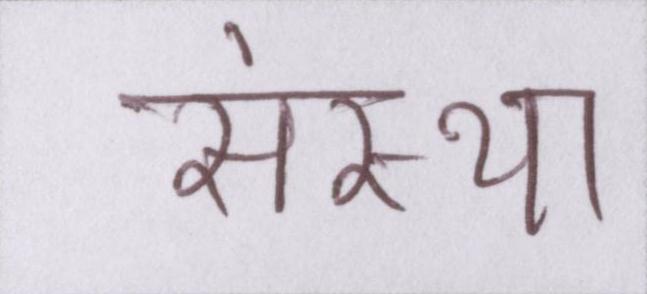 संस्था